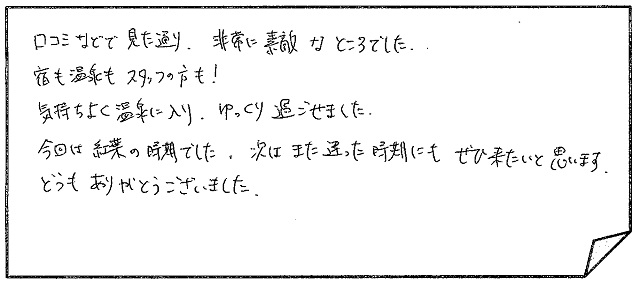 口コミなどで見た通り、非常に素敵なところでした。
宿も温泉もスタッフの方も！
気持ちよく温泉に入り、ゆっくり過ごせました。
今回は紅葉の時期でした。次はまた違った時期にもぜひ来たいと思います。
どうもありがとうございました。